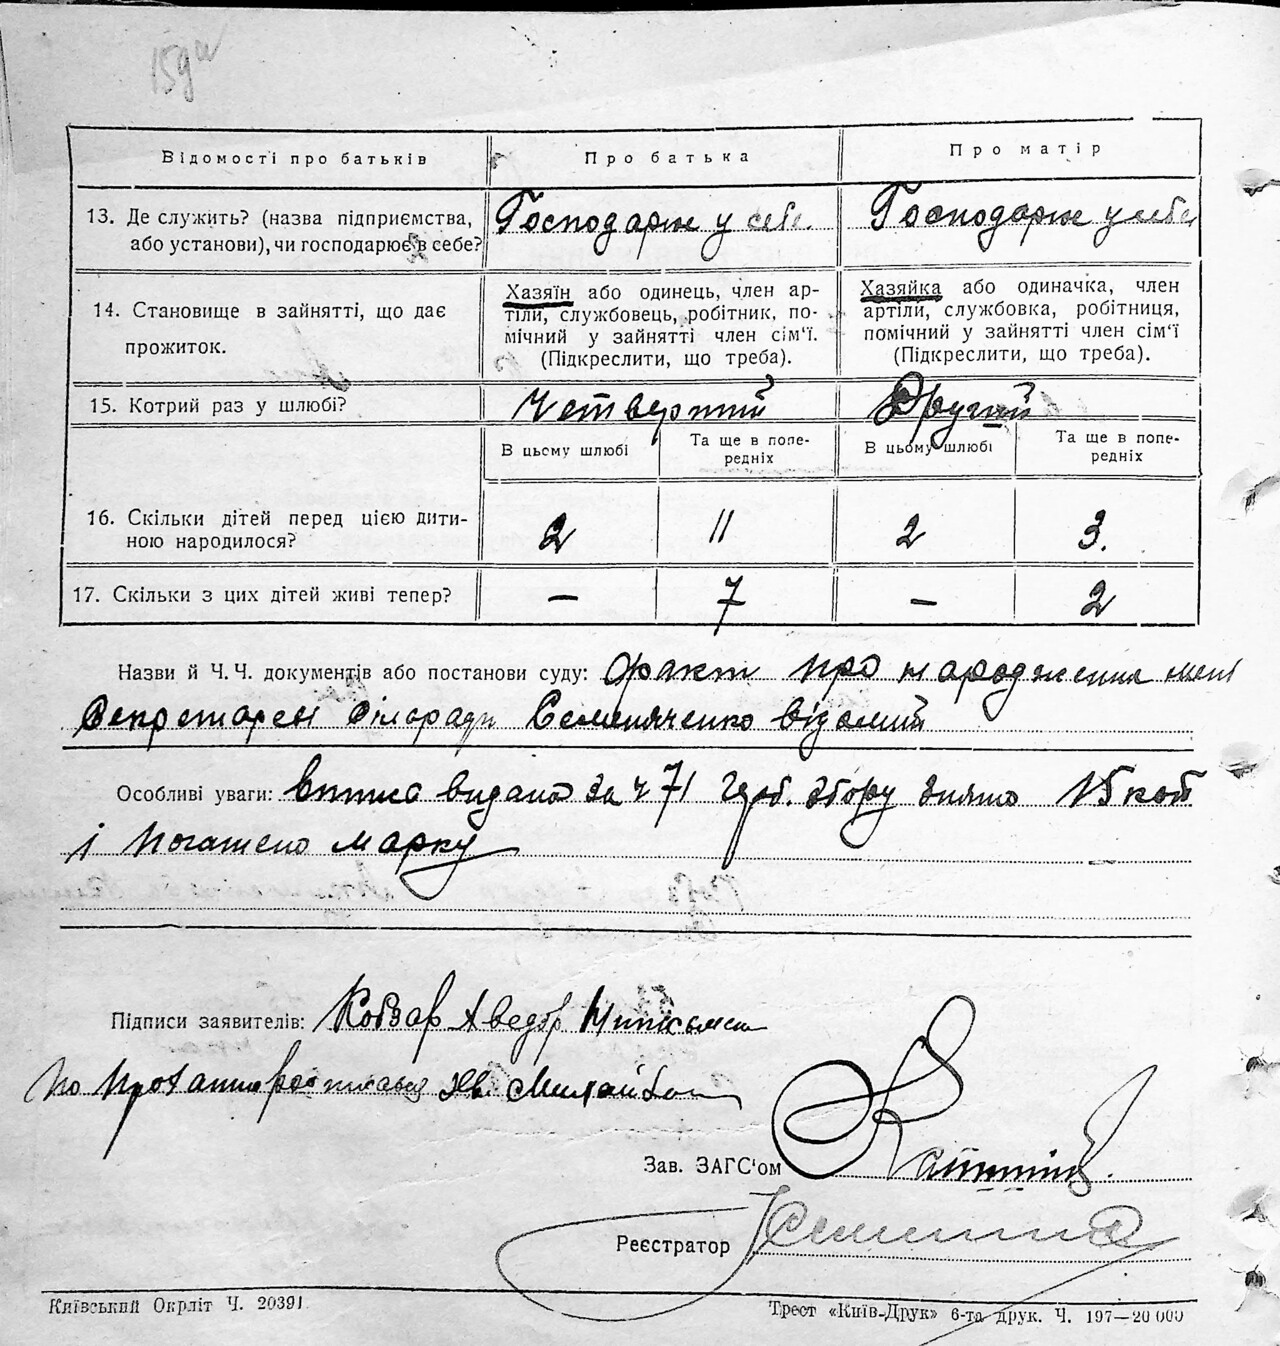 Відомості про батьків
Про батька
Про матір
13. Де служить? (назва підприємства, або установи), чи господарює в себе?
Господарж у себе
Господарж у себе
14. Становище в зайнятті, що дає прожиток.
Хазяїн або одинець, член ар-
тіли, службовець, робітник, по-
мічний у зайнятті член сім'ї.
(Підкреслити, що треба).
Хазяйка або одиначка, член
артіли, службовка, робітниця,
помічний у зайнятті член сім'ї
(Підкреслити, що треба).
15. Котрий раз у шлюбі?
Четвертий
Другий
В цьому шлюбі
Та ще в попе-
редніх
В цьому шлюбі
Та ще в попе-
редніх
16. Скільки дітей перед цією дити-
ною народилося?
2
11
2
3.
17. Скільки з цих дітей живі тепер?
—
7
—
2
Назви й Ч. Ч. документів або постанови суду: факт про народження мені
Секретарем Сільради Семеняченко відомий
Особливі уваги: витис видано за ч 71 збору знято 15 коп
і погашено марку
Підписи заявителів: Кобзар Аведор
по
Зав. ЗАГС'ом
Реєстратор
Київський Окрліт Ч. 20391
Трест «Київ-Друк» 6-та друк. Ч. 197—20 000